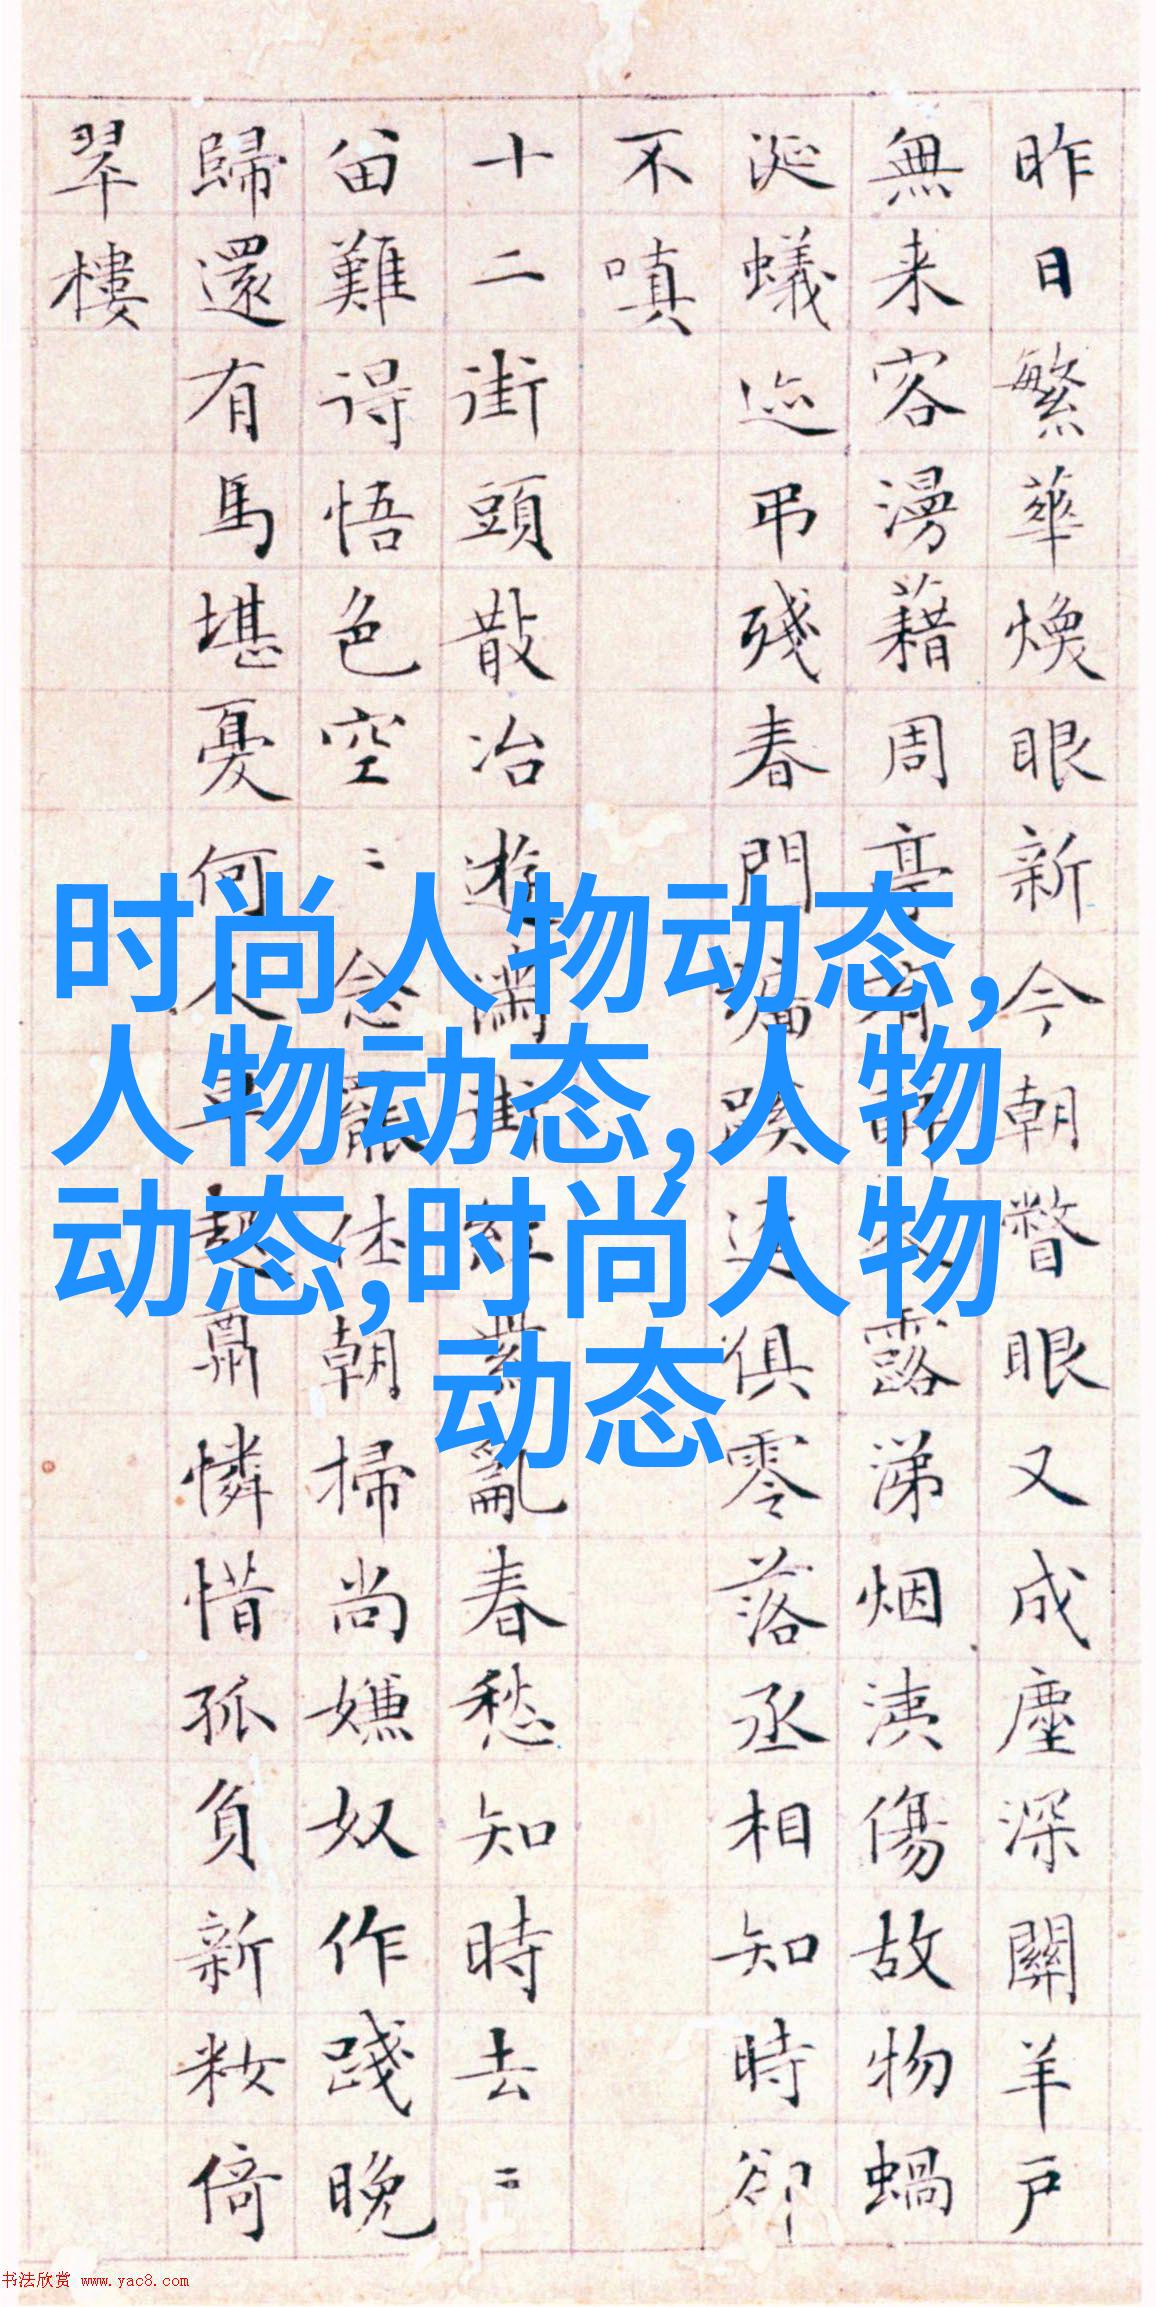 昨日繁華煥眼新今朝瞥眼又成塵深關羊戶
無来客漫藉周亭有露涕烟洟傷故物蝸
涎蟻迹弔殘春門墉蹊逕俱零落丞相知時卻
不嗔
十二街頭散冶遊滿街亂春愁知時去〻
留難得悟色空〻念朝掃尚嫌奴作踐晚
歸還有馬堪憂何人早起肩憐惜孤負新妝倚
翠樓
时尚人物动态,
人物动态,人物
动态,时尚人物
动态
书法欣赏 www.yac8.com